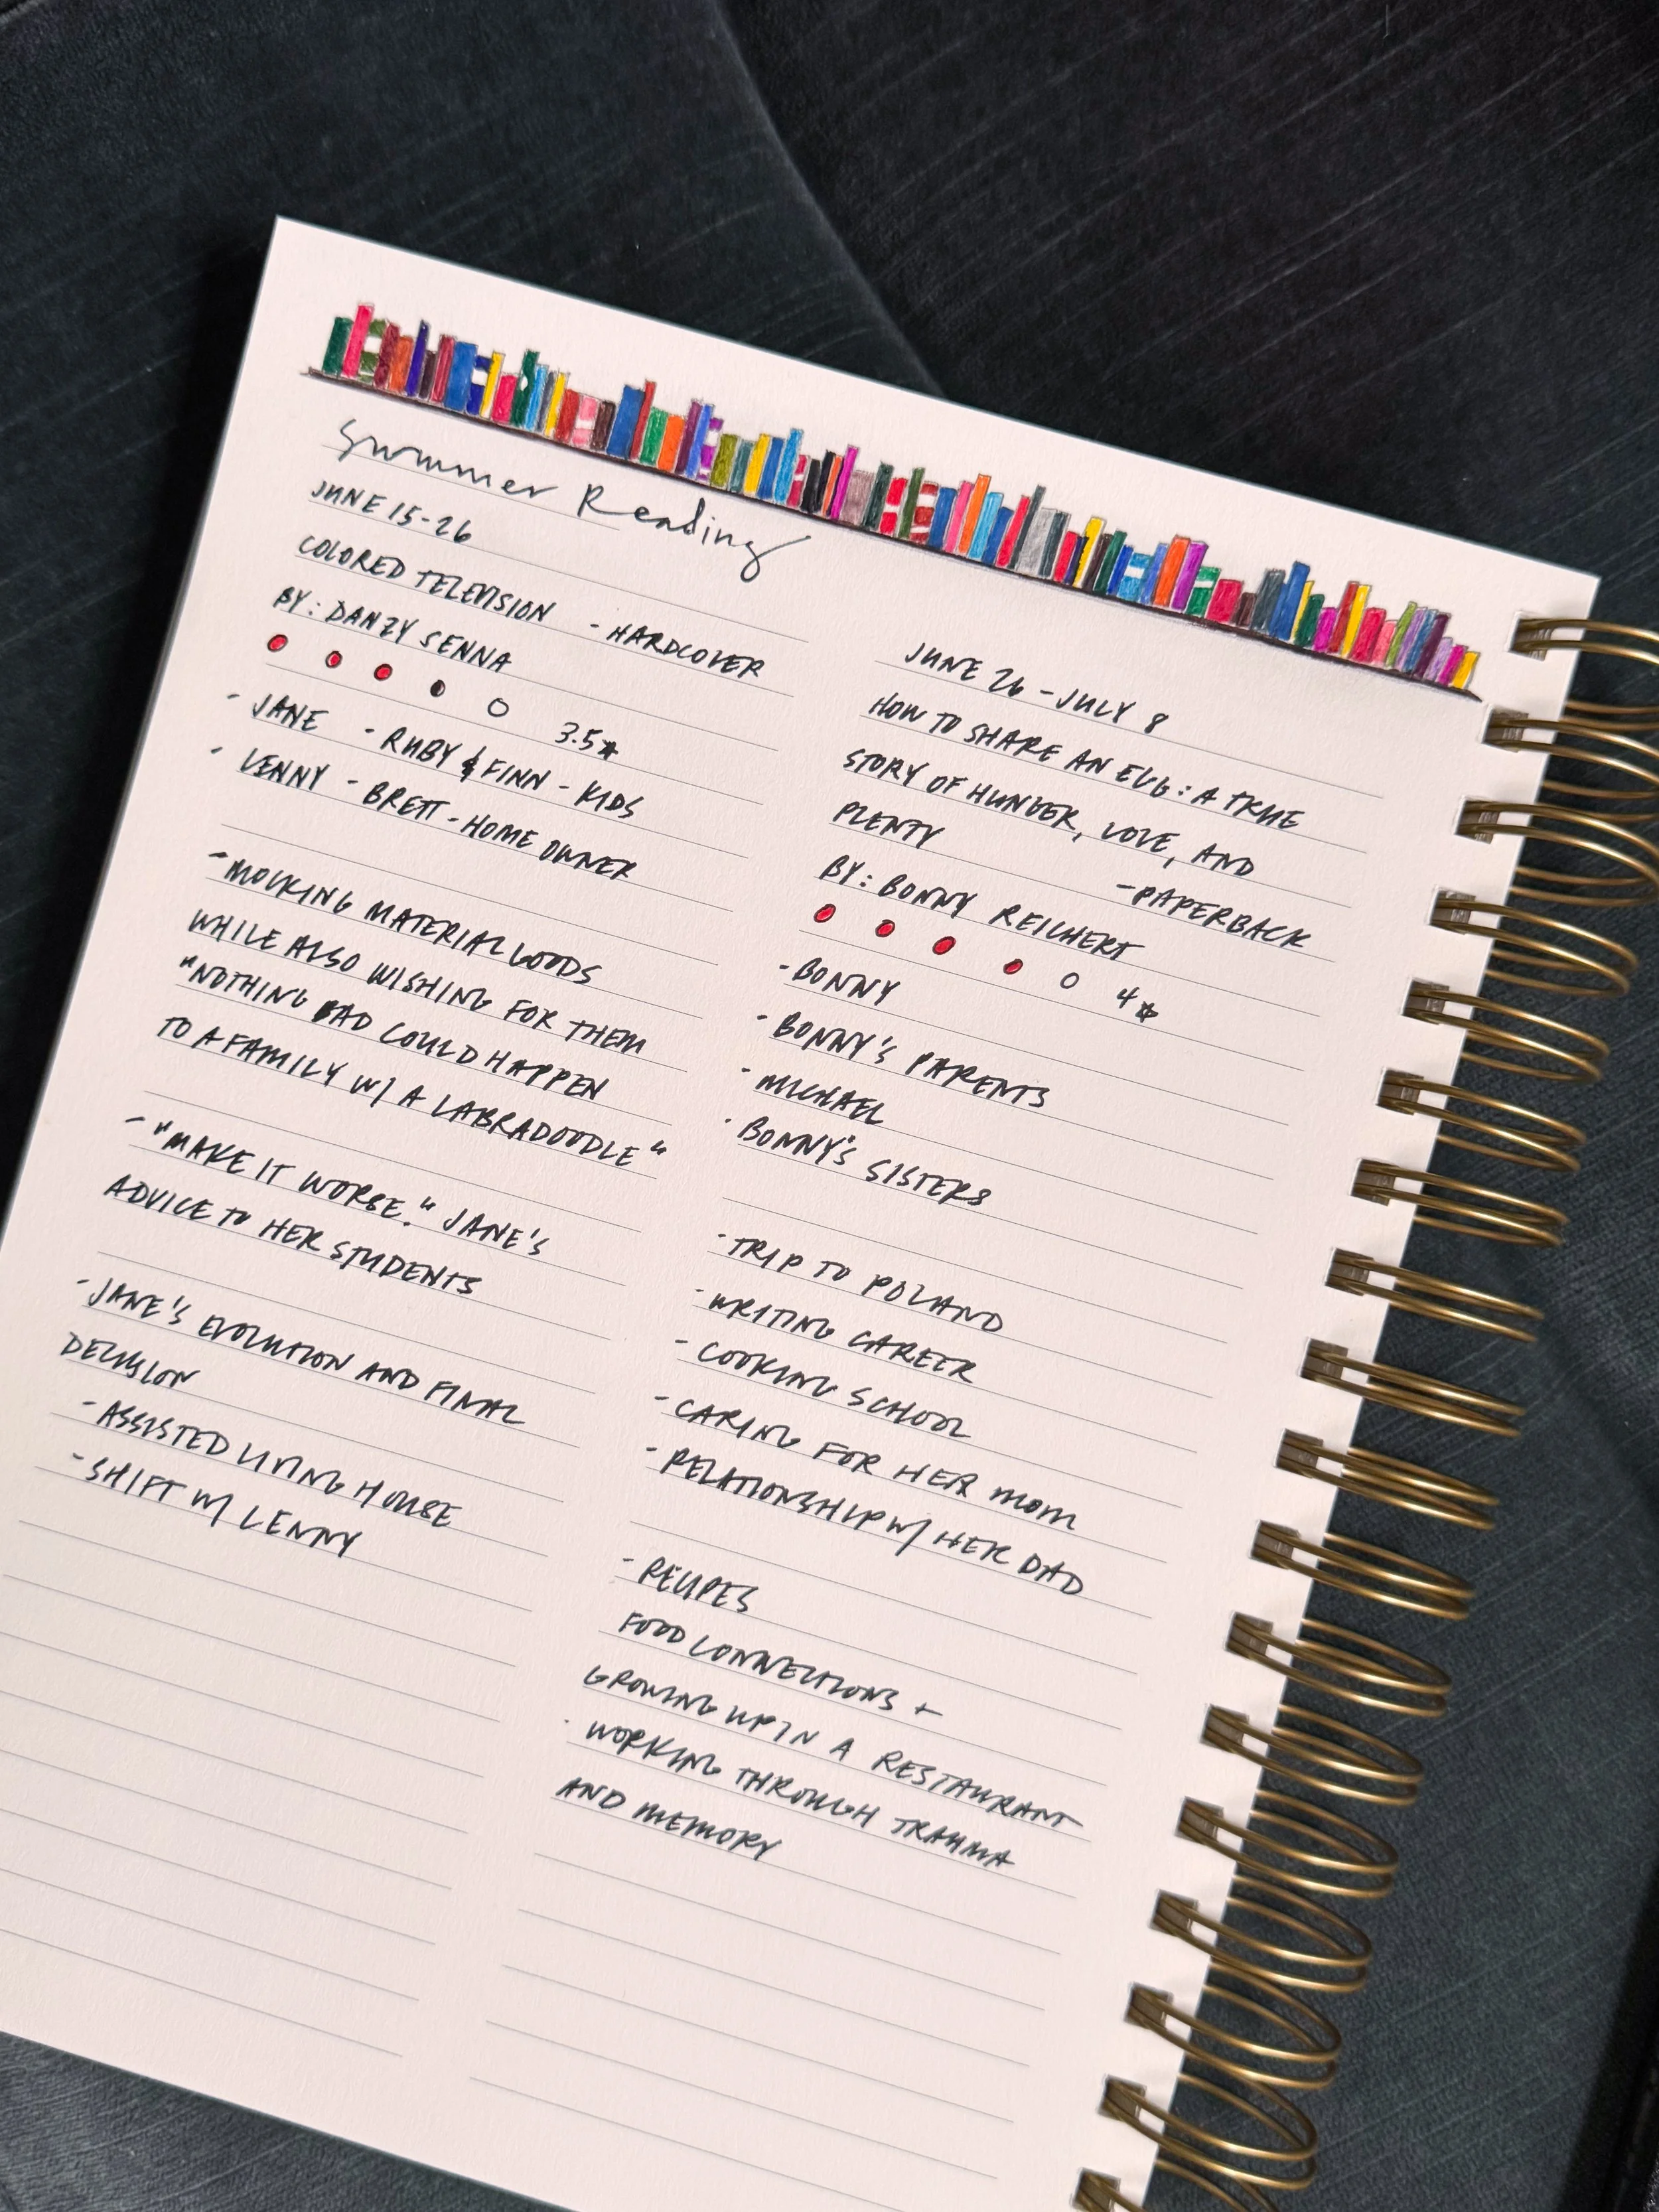 Summer Reading
JUNE 15-26
COLORED TELEVISION - HARDCOVER
BY: DANZY SENNA
3.5★
- JANE - RUBY & FINN - KIDS
- LENNY - BRETT - HOME OWNER
- MOCKING MATERIAL GOODS
WHILE ALSO WISHING FOR THEM
"NOTHING BAD COULD HAPPEN
TO A FAMILY W/ A LABRADOODLE"
- "MAKE IT WORSE." JANE'S
ADVICE TO HER STUDENTS
- JANE'S EVOLUTION AND FINAL
DECISION
- ASSISTED LIVING HOUSE
- SHIFT W/ LENNY
JUNE 26 - JULY 8
HOW TO SHARE AN EGG: A TRUE
STORY OF HUNGER, LOVE, AND
PLENTY
- PAPERBACK
BY: BONNY REICHERT
4★
- BONNY
- BONNY'S PARENTS
- MICHAEL
- BONNY'S SISTERS
- TRIP TO POLAND
- WRITING CAREER
- COOKING SCHOOL
- CARING FOR HER MOM
- RELATIONSHIP W/ HER DAD
- RECIPES
FOOD CONNECTIONS +
GROWING UP IN A RESTAURANT
- WORKING THROUGH TRAUMA
AND MEMORY